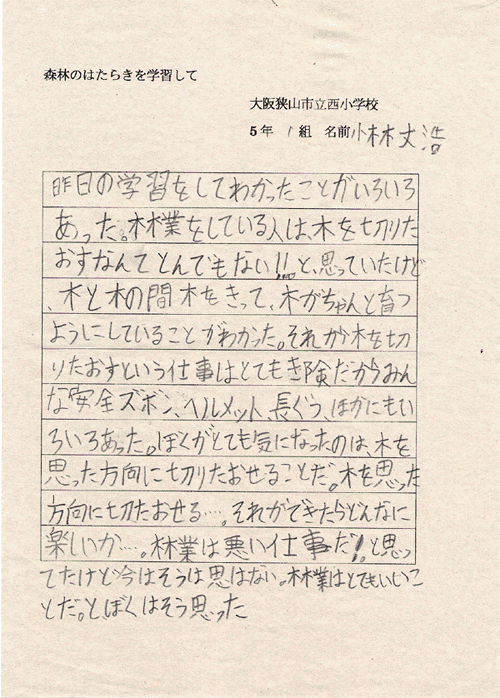 森林のはたらきを学習して
大阪狭山市立西小学校
5年 1組 名前 小林丈浩
昨日の学習をしてわかったことがいろいろ
あった。林業をしている人は、木を切りた
おすなんてとんでもない!!と、思っていたけど
、木と木の間木をきって、木がちゃんと育つ
ようにしていることがわかった。それから木を切
りたおすという仕事はとてもき険だからみん
な安全ズボン、ヘルメット、長ぐつ、ほかにもい
ろいろあった。ぼくがとても気になったのは、木を
思った方向に切りたおせることだ。木を思った
方向に切たおせる…。それができたらどんなに
楽しいか…。林業は悪い仕事だ!と思っ
てたけど今はそうは思はない。林業はとてもいいこ
とだ。と、ぼくはそう思った